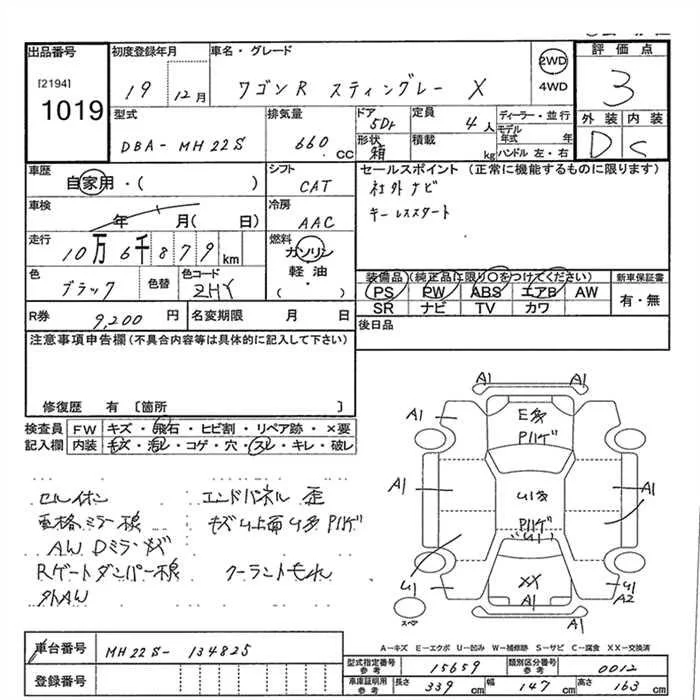 出品番号
[2194]
1019
初度登録年月
19 12月
車名・グレード
ワゴンR スティングレー X
2WD
4WD
評価点
3
外装 内装
D C
型式
DBA-MH22S
排気量
660 CC
ドア
5Dr
形状
箱
定員
4人
積載
kg
ディーラー・並行
モデル年式 年
ハンドル 左・右
車歴
自家用・( )
シフト
CAT
セールスポイント (正常に機能するものに限ります)
社外ナビ
キーレススタート
車検
年 月( 日)
冷房
AAC
走行
10万6千879km
燃料
ガソリン
軽油・
( )
色
ブラック
色替
色コード
ZHY
装備品 (純正品に限り○をつけてください)
PS PW ABS エアB AW
SR ナビ TV カワ
新車保証書
有・無
R券
9,200 円
名変期限 月 日
後日品
注意事項申告欄(不具合内容等は具体的に記入して下さい)
修復歴 有 〔箇所 〕
検査員記入欄
FW キズ・飛石・ヒビ割・リペア跡・×要
内装 キズ・汚レ・コゲ・穴・スレ・キレ・破レ
エンドパネル 歪
AW Dミラーキズ
Rゲートダンパー
クーラントモレ
A1
A1
A1
E多
Pハゲ
A1
U多
A1
Pハゲ
U1
XX
U1
A1
A2
A1
スペア
A-キズ E-エクボ U-凹み W-補修跡 S-サビ C-腐食 XX-交換済
車台番号
MH22S-134825
登録番号
型式指定番号
参考
15659
類別区分番号
参考
0012
車庫証明用
参考
長さ 339 cm
幅 147 cm
高さ 163 cm